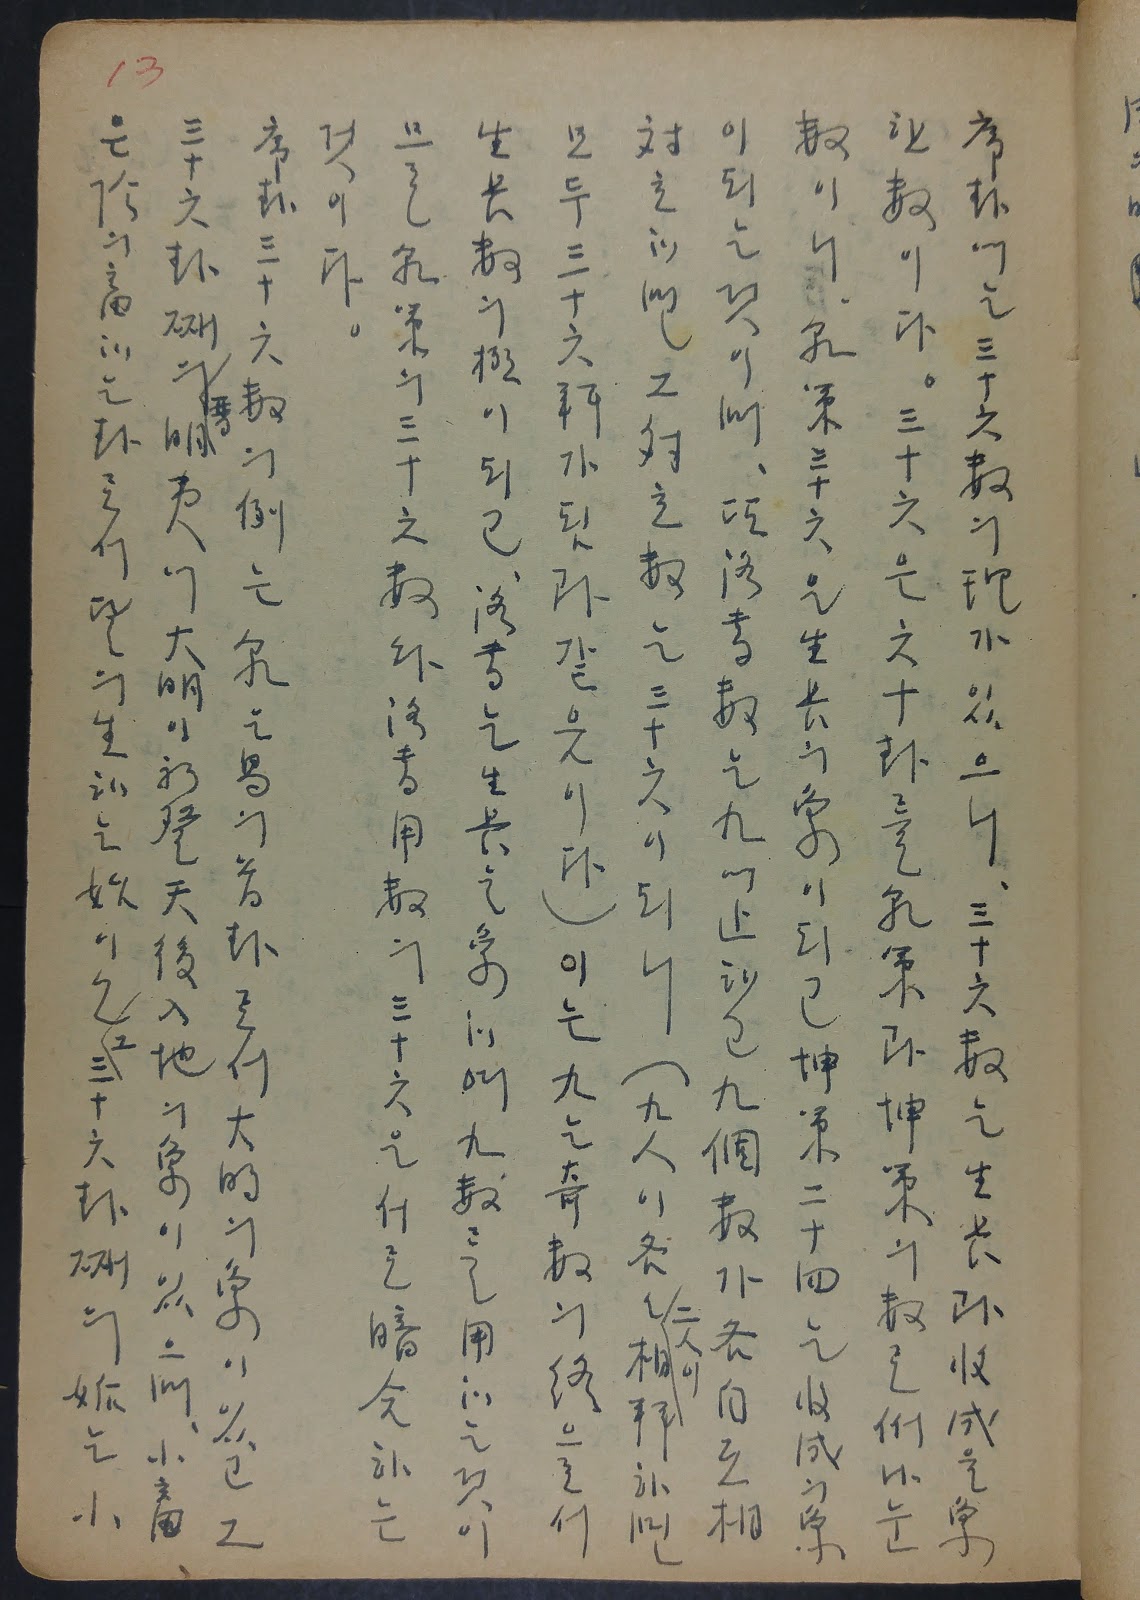 13
序卦에는 三十六數의 理가 있으니、三十六數는 生長과 收成을 象
한 數이다。三十六은 六十卦를 乾策과 坤策의 數로써 나눈
數이니、乾策 三十六은 生長의 象이 되고 坤策 二十四는 收成의 象
이 되는 것이며、또 洛書數는 九에 止하고 九個數가 各自로 相
對立하면 그 對立數는 三十六이 되니 (九人이 各々 二人이 相拜하면
모두 三十六拜가 됨과 같은 것이다) 이는 九는 奇數의 終으로서
生長數의 極이 되고、洛書는 生長는 象하며 九數를 用하는 것이
므로 乾策의 三十六數와 洛書用數의 三十六은 서로 暗合하는
것이다。
序卦三十六數의 例는 乾은 易의 首卦로서 大明의 象이 있고 그
三十六卦째의 明夷에 大明이 初登天後入地의 象이 있으며、小畜、
은 陰의 畜하는 卦로서 月의 生하는 始이고 그 三十六卦째의 姤는 小